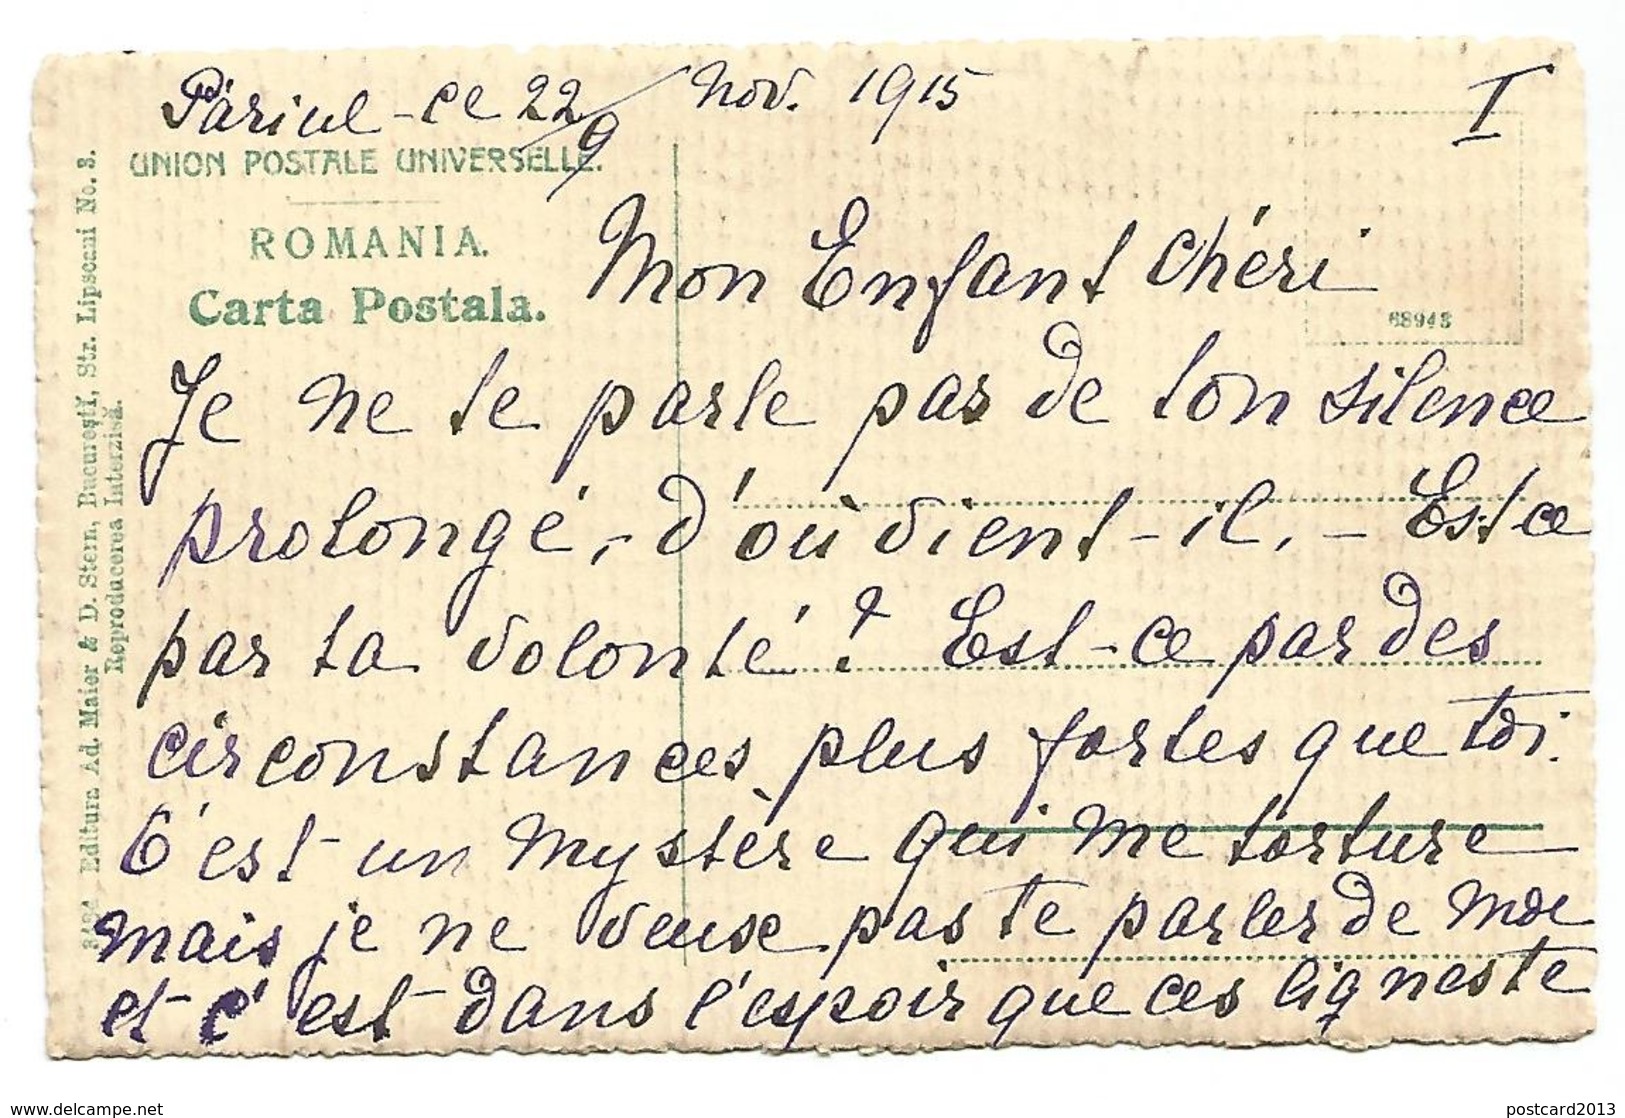 Păriul - ce 22/9 Nov. 1915
I
UNION POSTALE UNIVERSELLE.
ROMANIA.
Carta Postala.
68943
Editura Ad. Maier & D. Stern, Bucureştĭ, Str. Lipscani No. 3.
Reproducerea interzisă.
Mon Enfant chéri
Je ne te parle pas de ton silence
prolongé, - d'où vient-il, - Est ce
par ta volonté? Est-ce par des
circonstances plus fortes que toi.
C'est un mystère qui me torture
mais je ne veuse pas te parler de moi
et c'est dans l'espoir que ces lignes te
www.delcampe.net
postcard2013